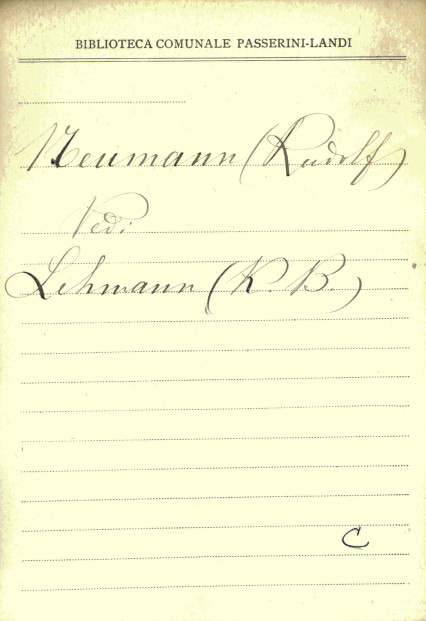 BIBLIOTECA COMUNALE PASSERINI-LANDI
Neumann (Rudolf)
Vedi
Lehmann (K. B.)
C